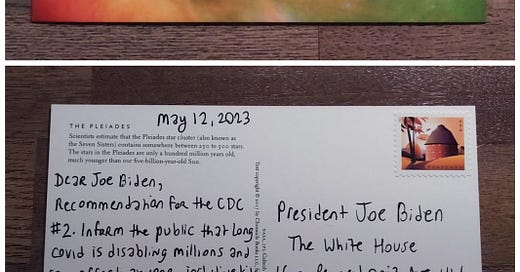 May 12, 2023
THE PLEIADES
Scientists estimate that the Pleiades star cluster (also known as
the Seven Sisters) contains somewhere between 250 to 500 stars.
The stars in the Pleiades are only a hundred million years old,
much younger than our five-billion-year-old Sun.
Dear Joe Biden,
Recommendation for the CDC
#2. Inform the public that long
covid is disabling millions and
Text copyright © 2017 by Chronicle Books LLC.
President Joe Biden
The White House